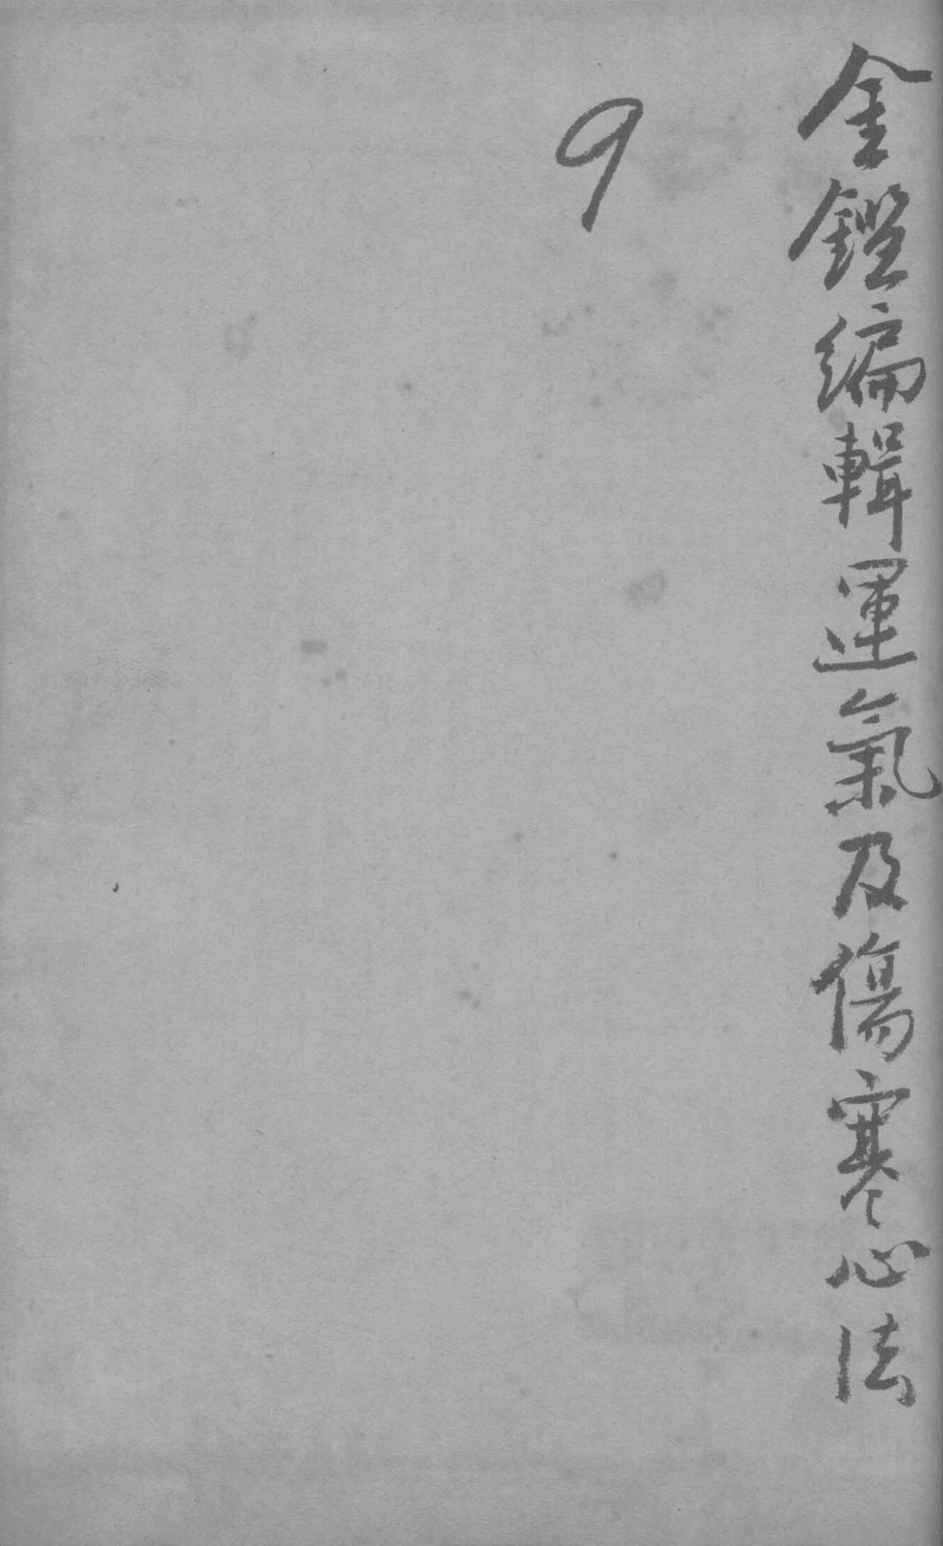 金鑑編輯運氣及傷寒心法
9